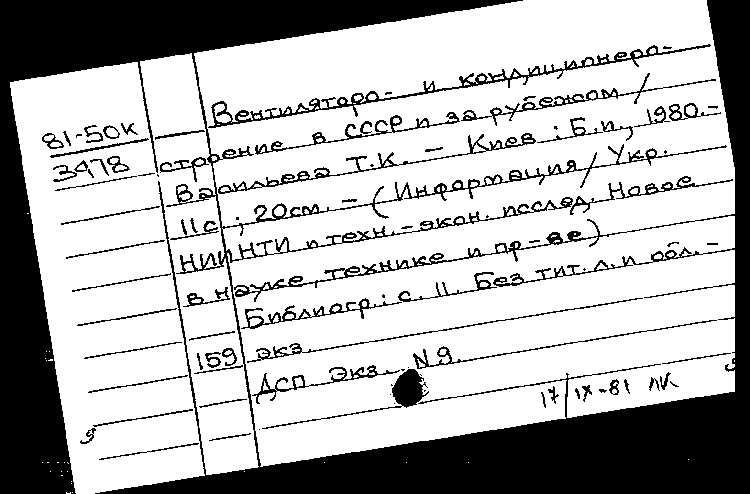 Вентиляторо- и кондиционеро-
81-50к
строение в СССР и за рубежом /
3478
Васильева Т.К. – Киев : Б.и., 1980.–
11с ; 20см. – (Информация / Укр.
НИИНТИ и техн.-экон. исслед. Новое
в науке, технике и пр-ве)
Библиогр.: с. 11. Без тит. л. и обл. –
159 экз.
ДСП Экз. N9.
17/IX-81 ЛК